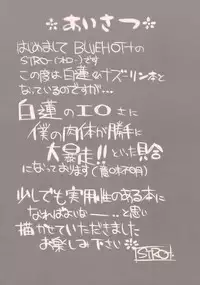 ※あいさつ※
はじめまして BLUEMOTHの
STRO-(ストロー)です
この度は白蓮×ナズーリン本と
なっているのですが…
白蓮のエロさに
僕の肉体が勝手に
大暴走!!といった具合
になっております
少しでも実用性のある本に
なればないいなーと思い
描かせていただきました
お楽しみ下さい※
STRO-